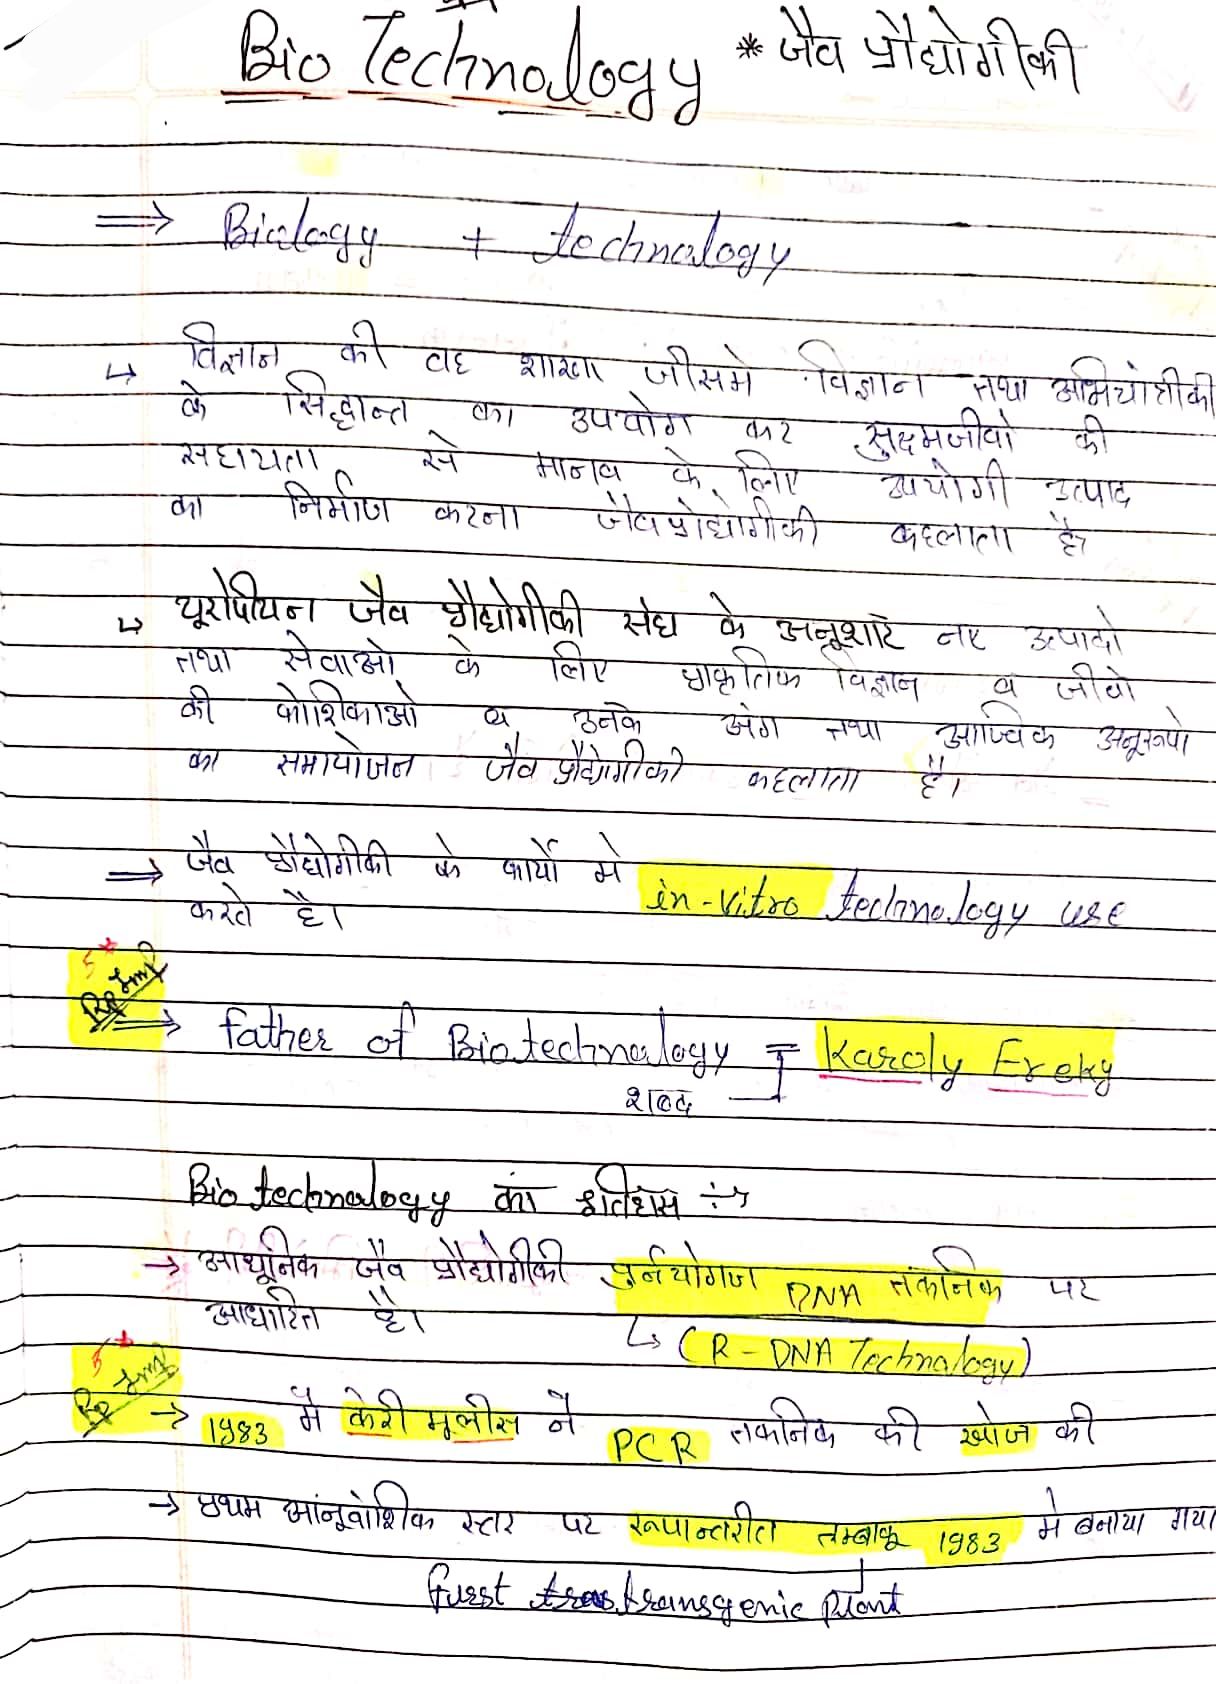 Bio Technology * जैव प्रौद्योगीकी
⇒ Biology + technology
↳ विज्ञान की वह शाखा जीसमे विज्ञान तथा अभियांत्रीकी
के सिद्धान्त का उपयोग कर सुक्ष्मजीवो की
सहायता से मानव के लिए उपयोगी उत्पाद
का निर्माण करना जैवप्रोद्योगीकी कहलाता है।
↳ यूरोपीयन जैव प्रौद्योगीकी संघ के अनूशार नए उत्पादो
तथा सेवाओ के लिए प्राकृतिक विज्ञान व जीवो
की कोशिकाओ व उनके अंग तथा आण्विक अनूरूपो
का समायोजन जैव प्रौद्योगीकी कहलाता है।
⇒ जैव प्रौद्योगीकी के कार्यो मे in-vitro technology use
करते है।
5*
Imp
⇒ father of Biotechnology = Karoly Ereky
शब्द
Bio technology का इतिहास ÷→
→ आधूनिक जैव प्रौद्योगीकी पुर्नयोगज DNA तकनिक पर
आधारित है।
↳ (R-DNA Technology)
5*
Imp
→ 1983 मे केरी मूलीस ने PCR तकनिक की खोज की
→ प्रथम आंनूवांशिक स्तर पर रूपान्तरीत तम्बाकू 1983 मे बनाया गया
furst transgenic plant